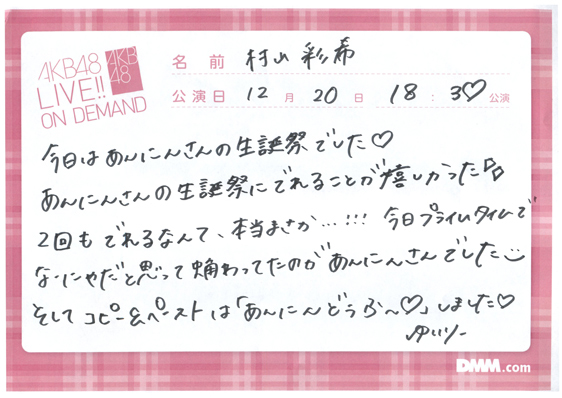 AKB48
LIVE!!
ON DEMAND
AKB
48
名前 村山彩希
公演日 12月20日 18:30公演
今日はあんにんさんの生誕祭でした♡
あんにんさんの生誕祭にでれることが嬉しかった
2回もでれるなんて、本当まさか…!!! 今日プライムタイムで
なーにゃだと思って備わってたのがあんにんさんでした
そしてコピー&ペーストは「あんにんどぅふ〜♡」しました♡
ゆいりー
DMM.com